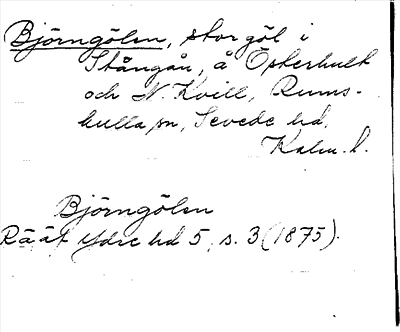 Björngölen, stor göl i
Stångån, å Öskerhult
och N. Kvill, Rums-
kulla sn, Sevede hd.
Kalm. l.
Björngölen
Rääf Ydre hd 5, s. 3 (1875).